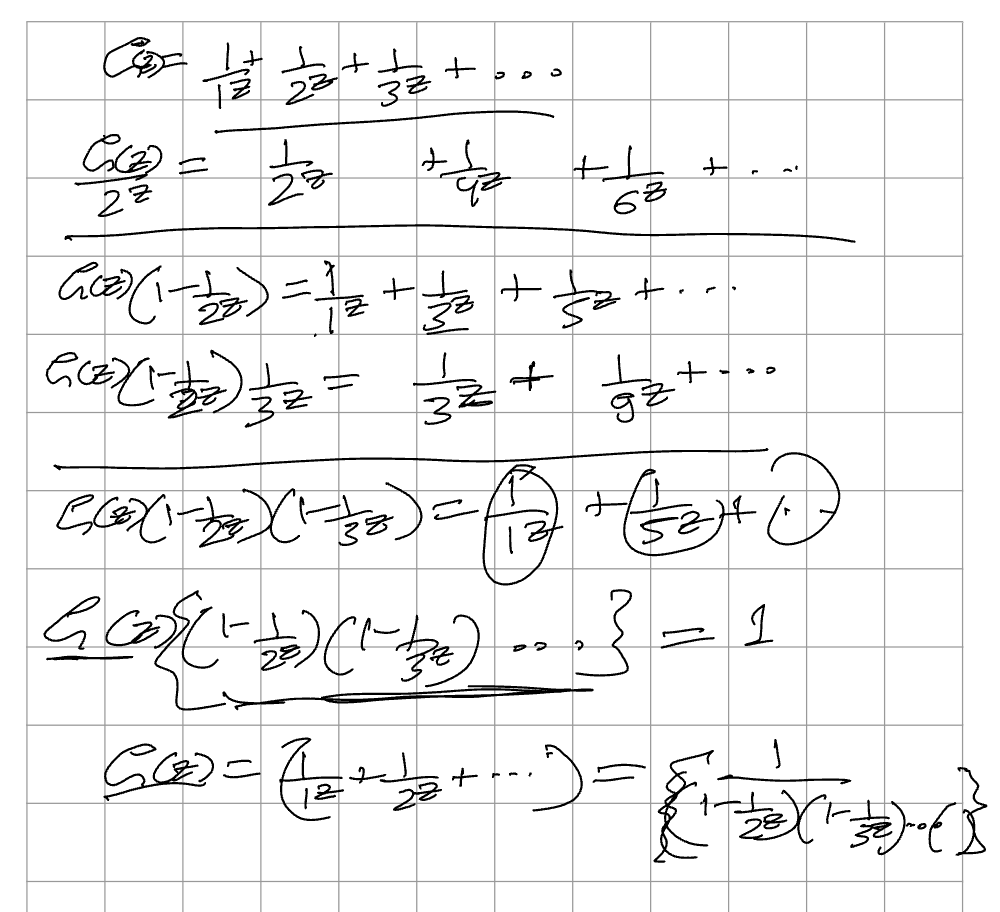 ζ(z) = 1/1^z + 1/2^z + 1/3^z + ...
ζ(z)/2^z = 1/2^z + 1/4^z + 1/6^z + ...
ζ(z)(1-1/2^z) = 1/1^z + 1/3^z + 1/5^z + ...
ζ(z)(1-1/2^z) 1/3^z = 1/3^z + 1/9^z + ...
ζ(z)(1-1/2^z)(1-1/3^z) = 1/1^z + 1/5^z + (..)
ζ(z){(1-1/2^z)(1-1/3^z) ....} = 1
ζ(z) = (1/1^z + 1/2^z + ...) = {1/((1-1/2^z)(1-1/3^z)...()}